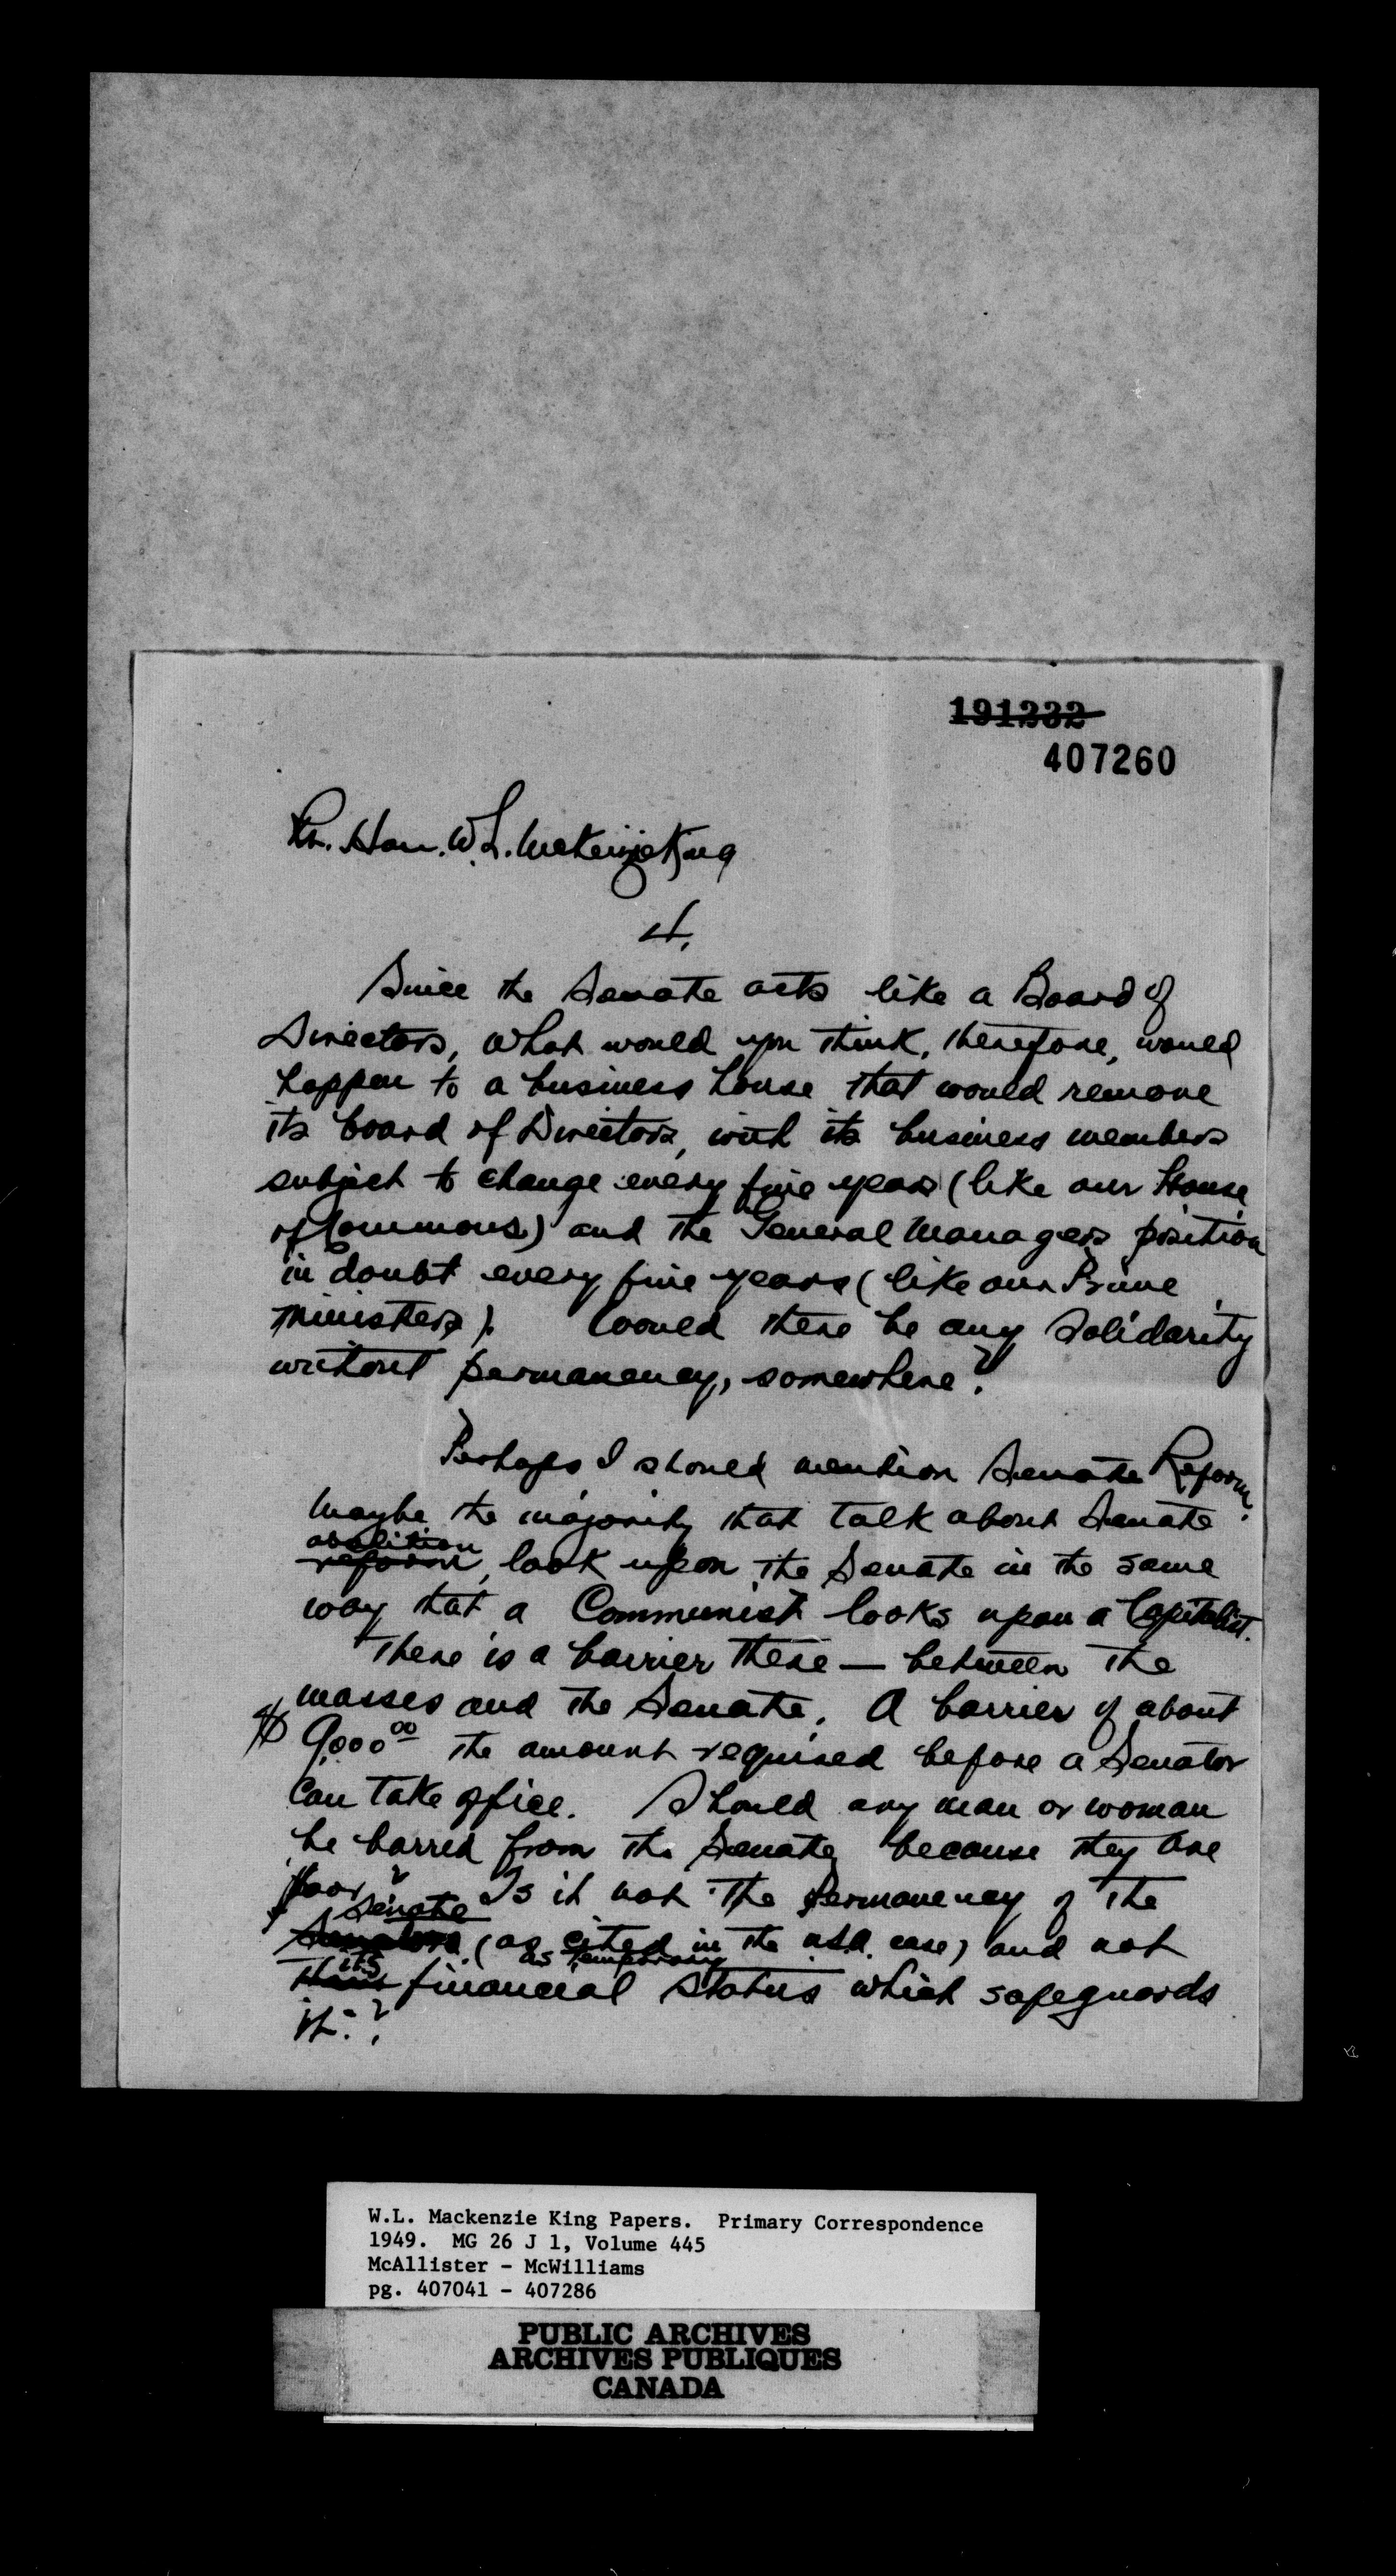 191232
407260
Rt. Hon. W. L. McKenzie King
4.
Since the Senate acts like a Board of
Directors, what would you think, therefore, would
happen to a business house that would remove
its board of Directors, with its business members
subject to change every five years (like our House
of Commons) and the General Managers position
in doubt every five years (like our Prime
Ministers). Would there be any solidarity
without permanency, somewhere?
Perhaps I should mention Senate Reform.
Maybe the majority that talk about Senate
abolition
reform, look upon the Senate in the same
way that a Communist looks upon a Capitalist.
There is a barrier there — between the
masses and the Senate. A barrier of about
$ 9,000 00 the amount required before a Senator
can take office. Should any man or woman
be barred from the Senate because they are
poor? Is it not the Permanency of the
Senate
Senators (as cited in the U.S.A. case) and not
its as temporary
their financial status which safeguards
it?
W.L. Mackenzie King Papers. Primary Correspondence
1949. MG 26 J 1, Volume 445
McAllister - McWilliams
pg. 407041 - 407286
PUBLIC ARCHIVES
ARCHIVES PUBLIQUES
CANADA